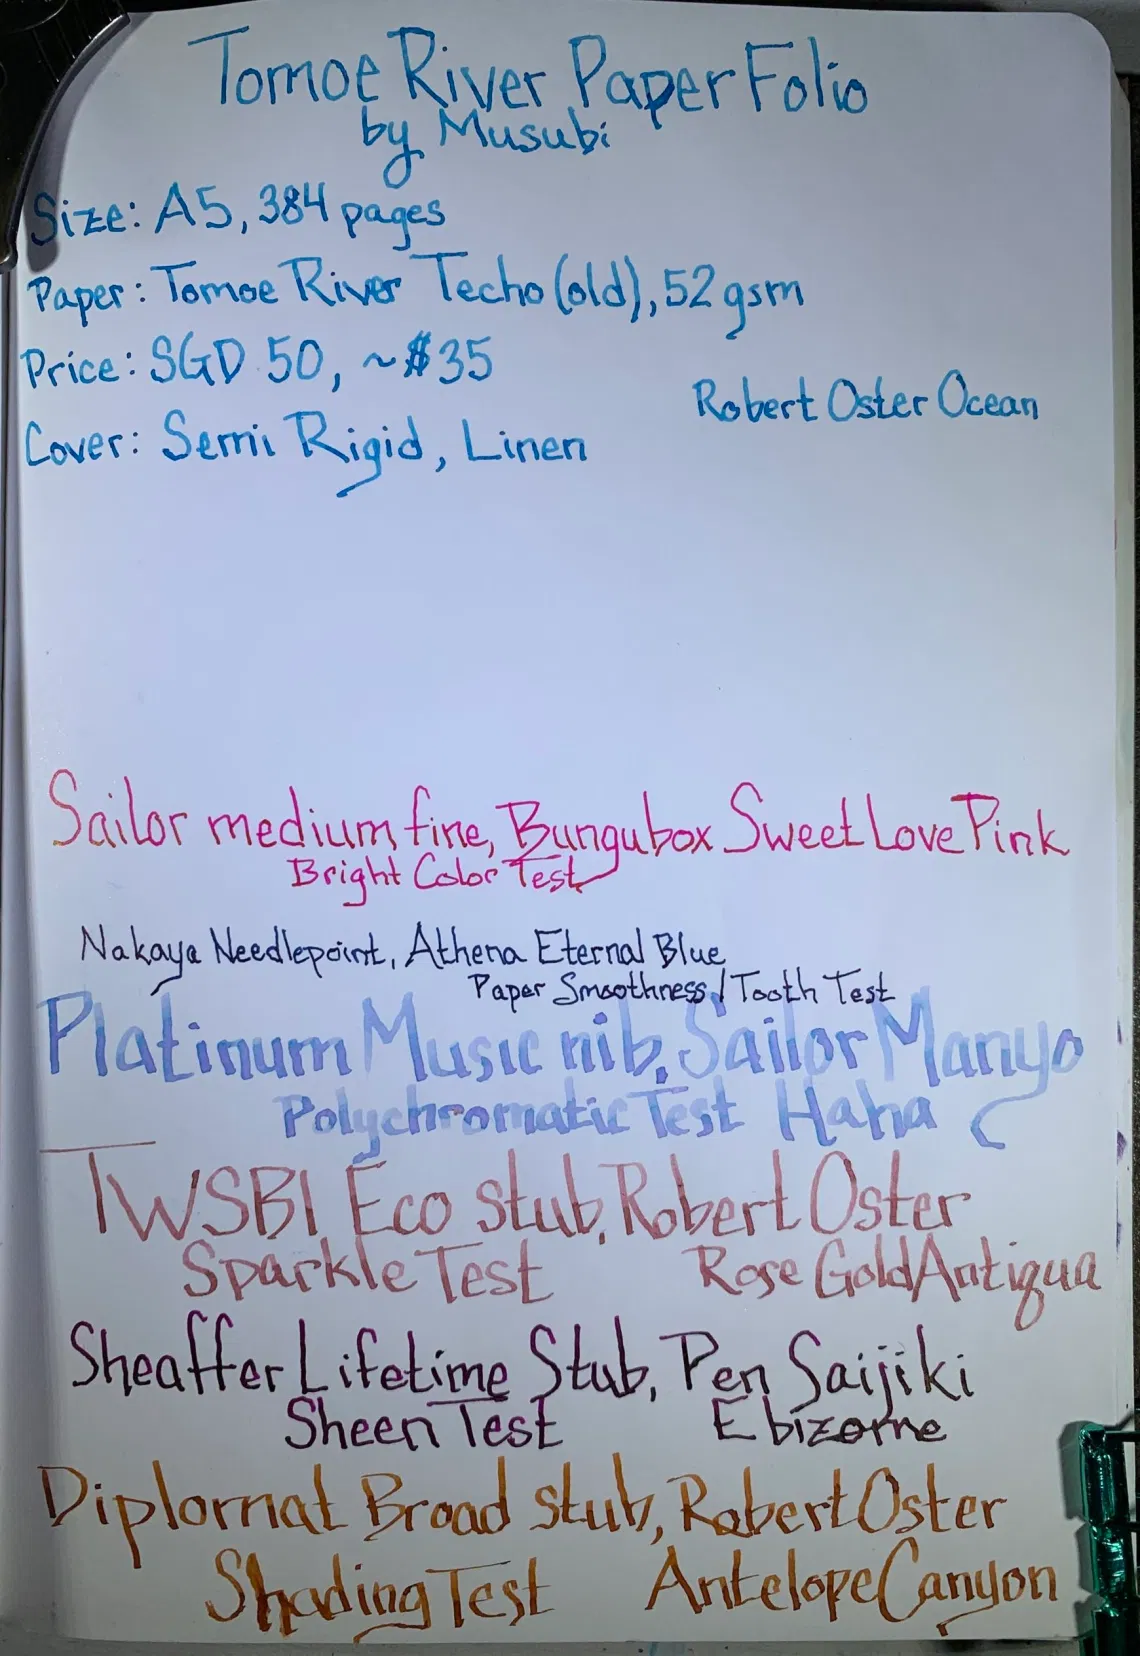 Tomoe River Paper Folio
by Musubi
Size: A5, 384 pages
Paper: Tomoe River Techo (old), 52 gsm
Price: SGD 50, ~$35
Robert Oster Ocean
Cover: Semi Rigid, Linen
Sailor medium fine, Bungubox Sweet Love Pink
Bright Color Test
Nakaya Needlepoint, Athena Eternal Blue
Paper Smoothness / Tooth Test
Platinum Music nib, Sailor Manyo
Polychromatic Test Haha
TWSBI Eco stub, Robert Oster
Sparkle Test Rose Gold Antiqua
Sheaffer Lifetime Stub, Pen Saijiki
Sheen Test Ebizome
Diplomat Broad stub, Robert Oster
Shading Test Antelope Canyon